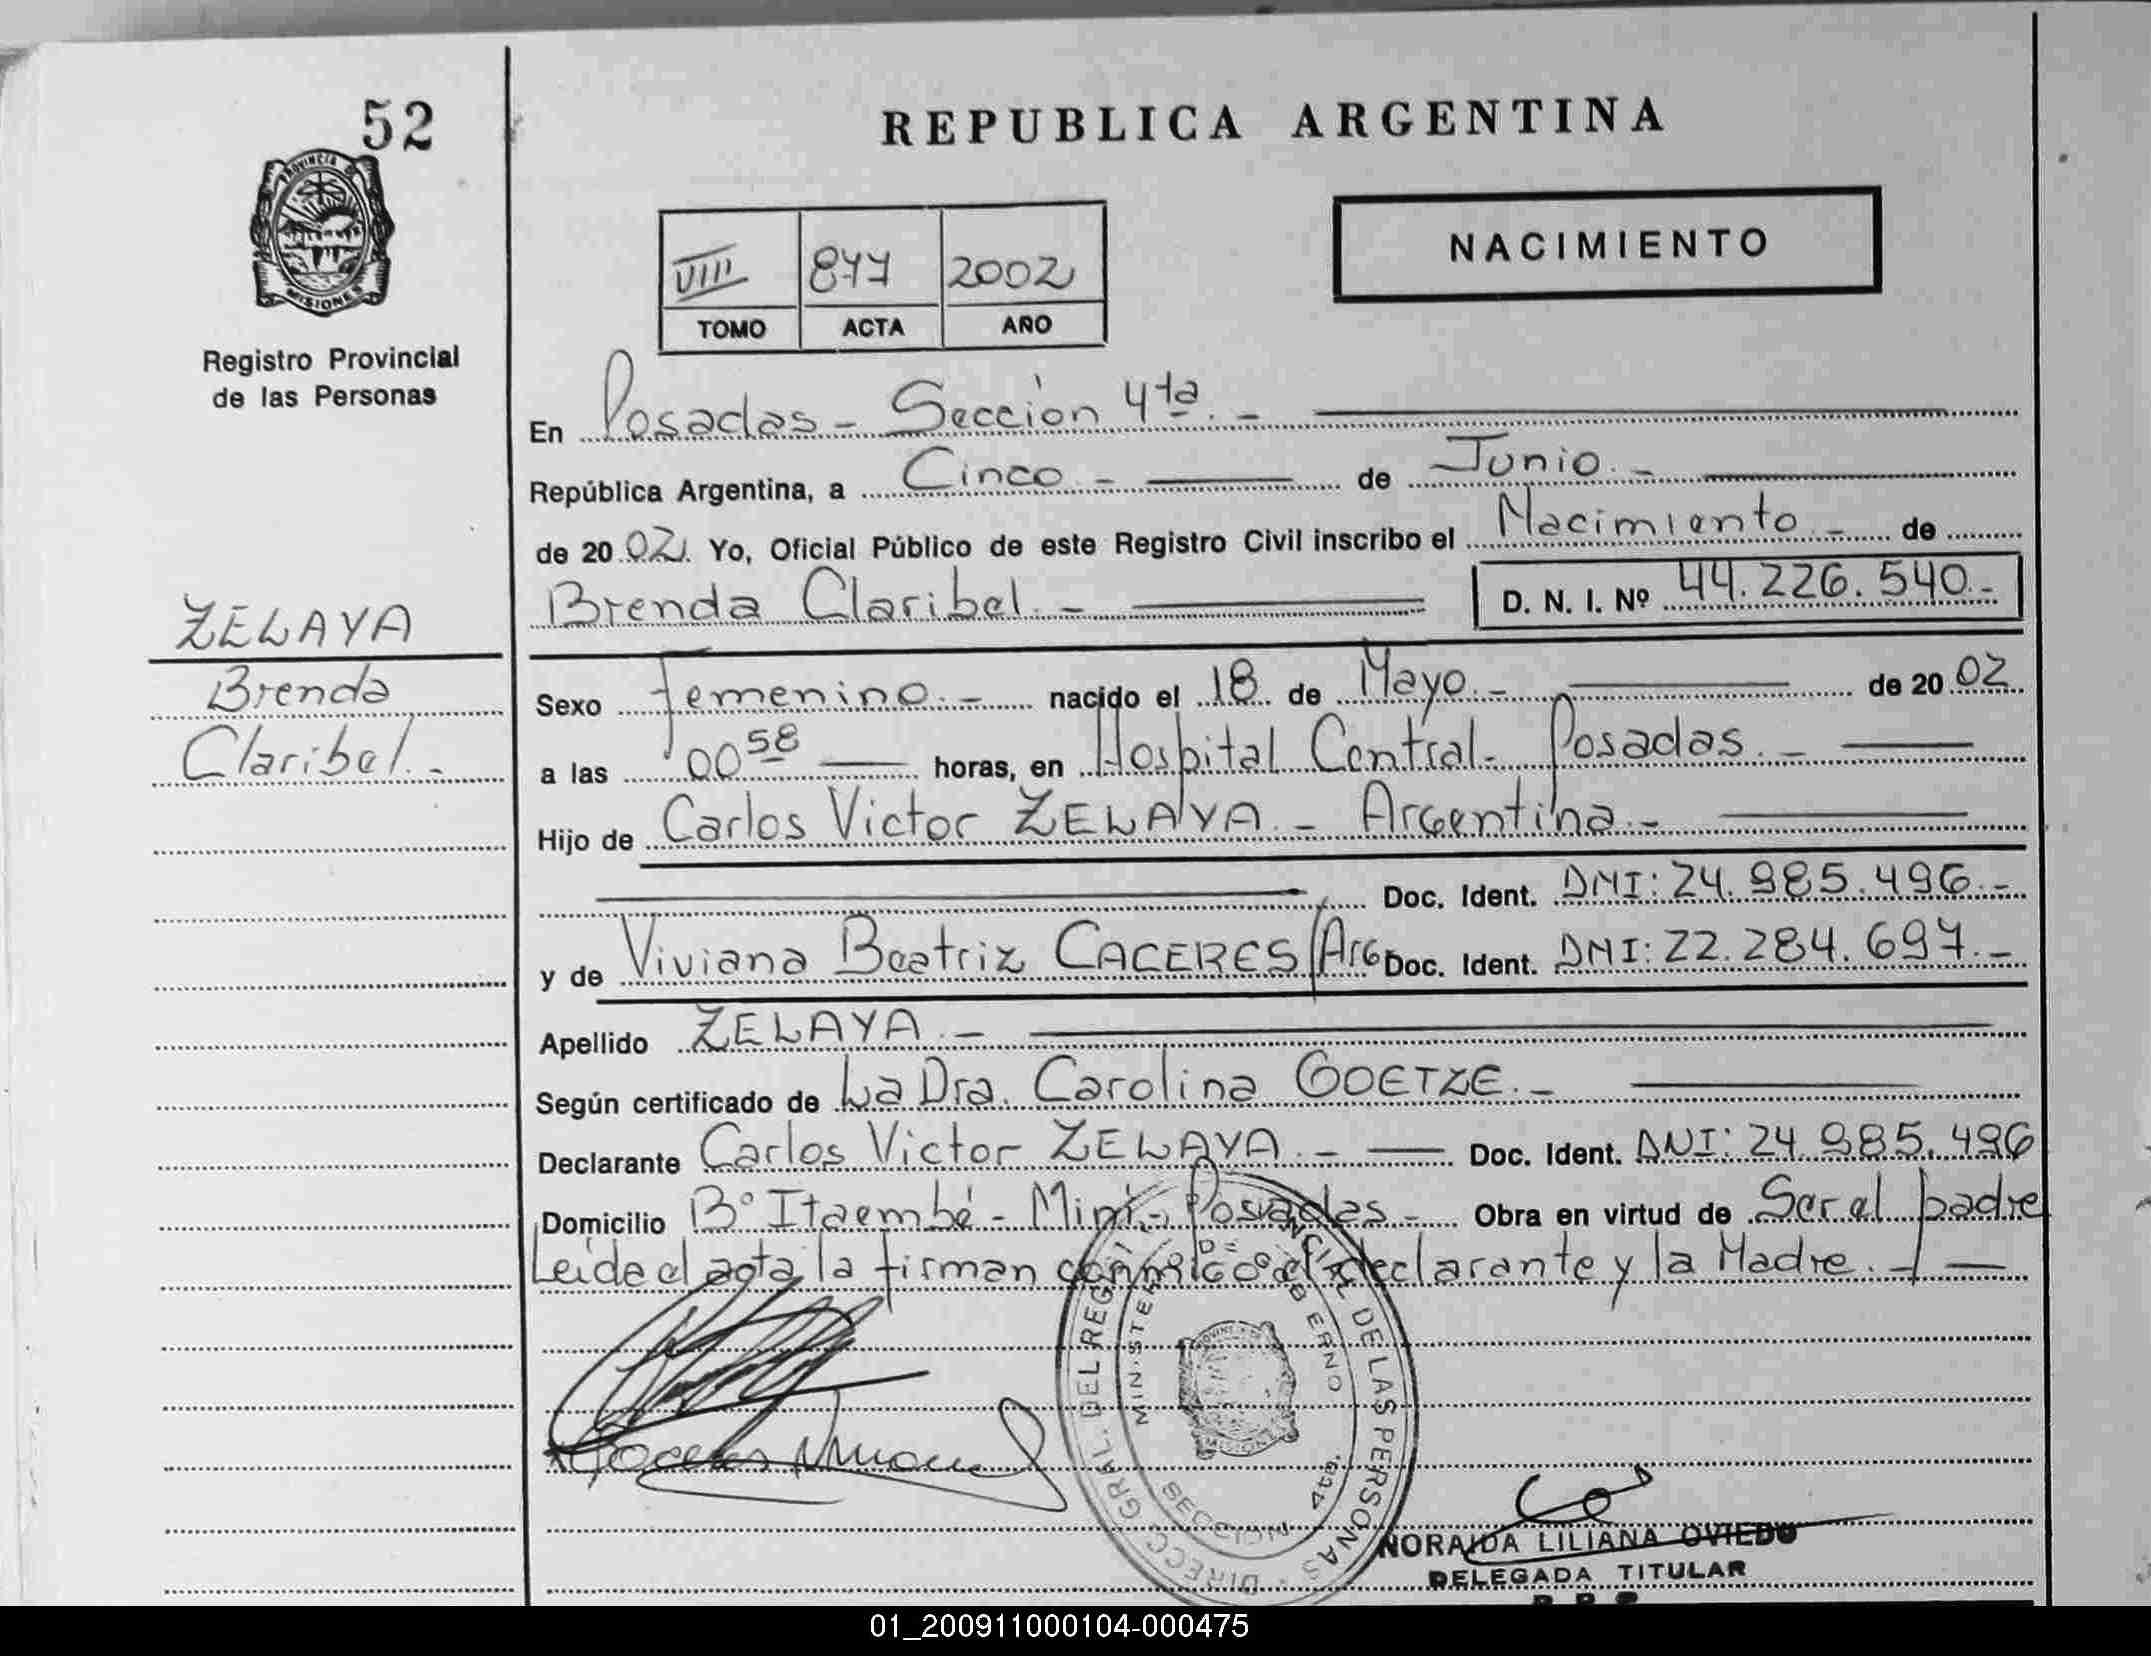 52
REPUBLICA ARGENTINA
PROVINCIA DE
MISIONES
Registro Provincial
de las Personas
VIII 877 2002
TOMO ACTA AÑO
NACIMIENTO
En Posadas - Sección 4ta. -
República Argentina, a Cinco. - de Junio. -
de 20 02 Yo, Oficial Público de este Registro Civil inscribo el Nacimiento. - de
Brenda Claribel. - D. N. I. Nº 44.226.540.-
ZELAYA
Brenda
Claribel. -
Sexo Femenino. - nacido el 18 de Mayo. - de 20 02
a las 00 58 horas, en Hospital Central - Posadas. -
Hijo de Carlos Victor ZELAYA. - Argentina. -
Doc. Ident. DNI: 24.985.496.-
y de Viviana Beatriz CACERES/Arg Doc. Ident. DNI: 22.284.697.-
Apellido ZELAYA. -
Según certificado de La Dra. Carolina GOETZE. -
Declarante Carlos Victor ZELAYA. - Doc. Ident. DNI: 24.985.496
Domicilio Bº Itaembé - Miní - Posadas - Obra en virtud de Ser el padre
Leída el acta la firman conmigo el declarante y la Madre. -
DIRECC. GRAL. DEL REG. PROVINCIAL DE LAS PERSONAS
MINISTERIO DE GOBIERNO
MISIONES
SECCION 4ta.
NORAIDA LILIANA OVIEDO
DELEGADA TITULAR
01_200911000104-000475